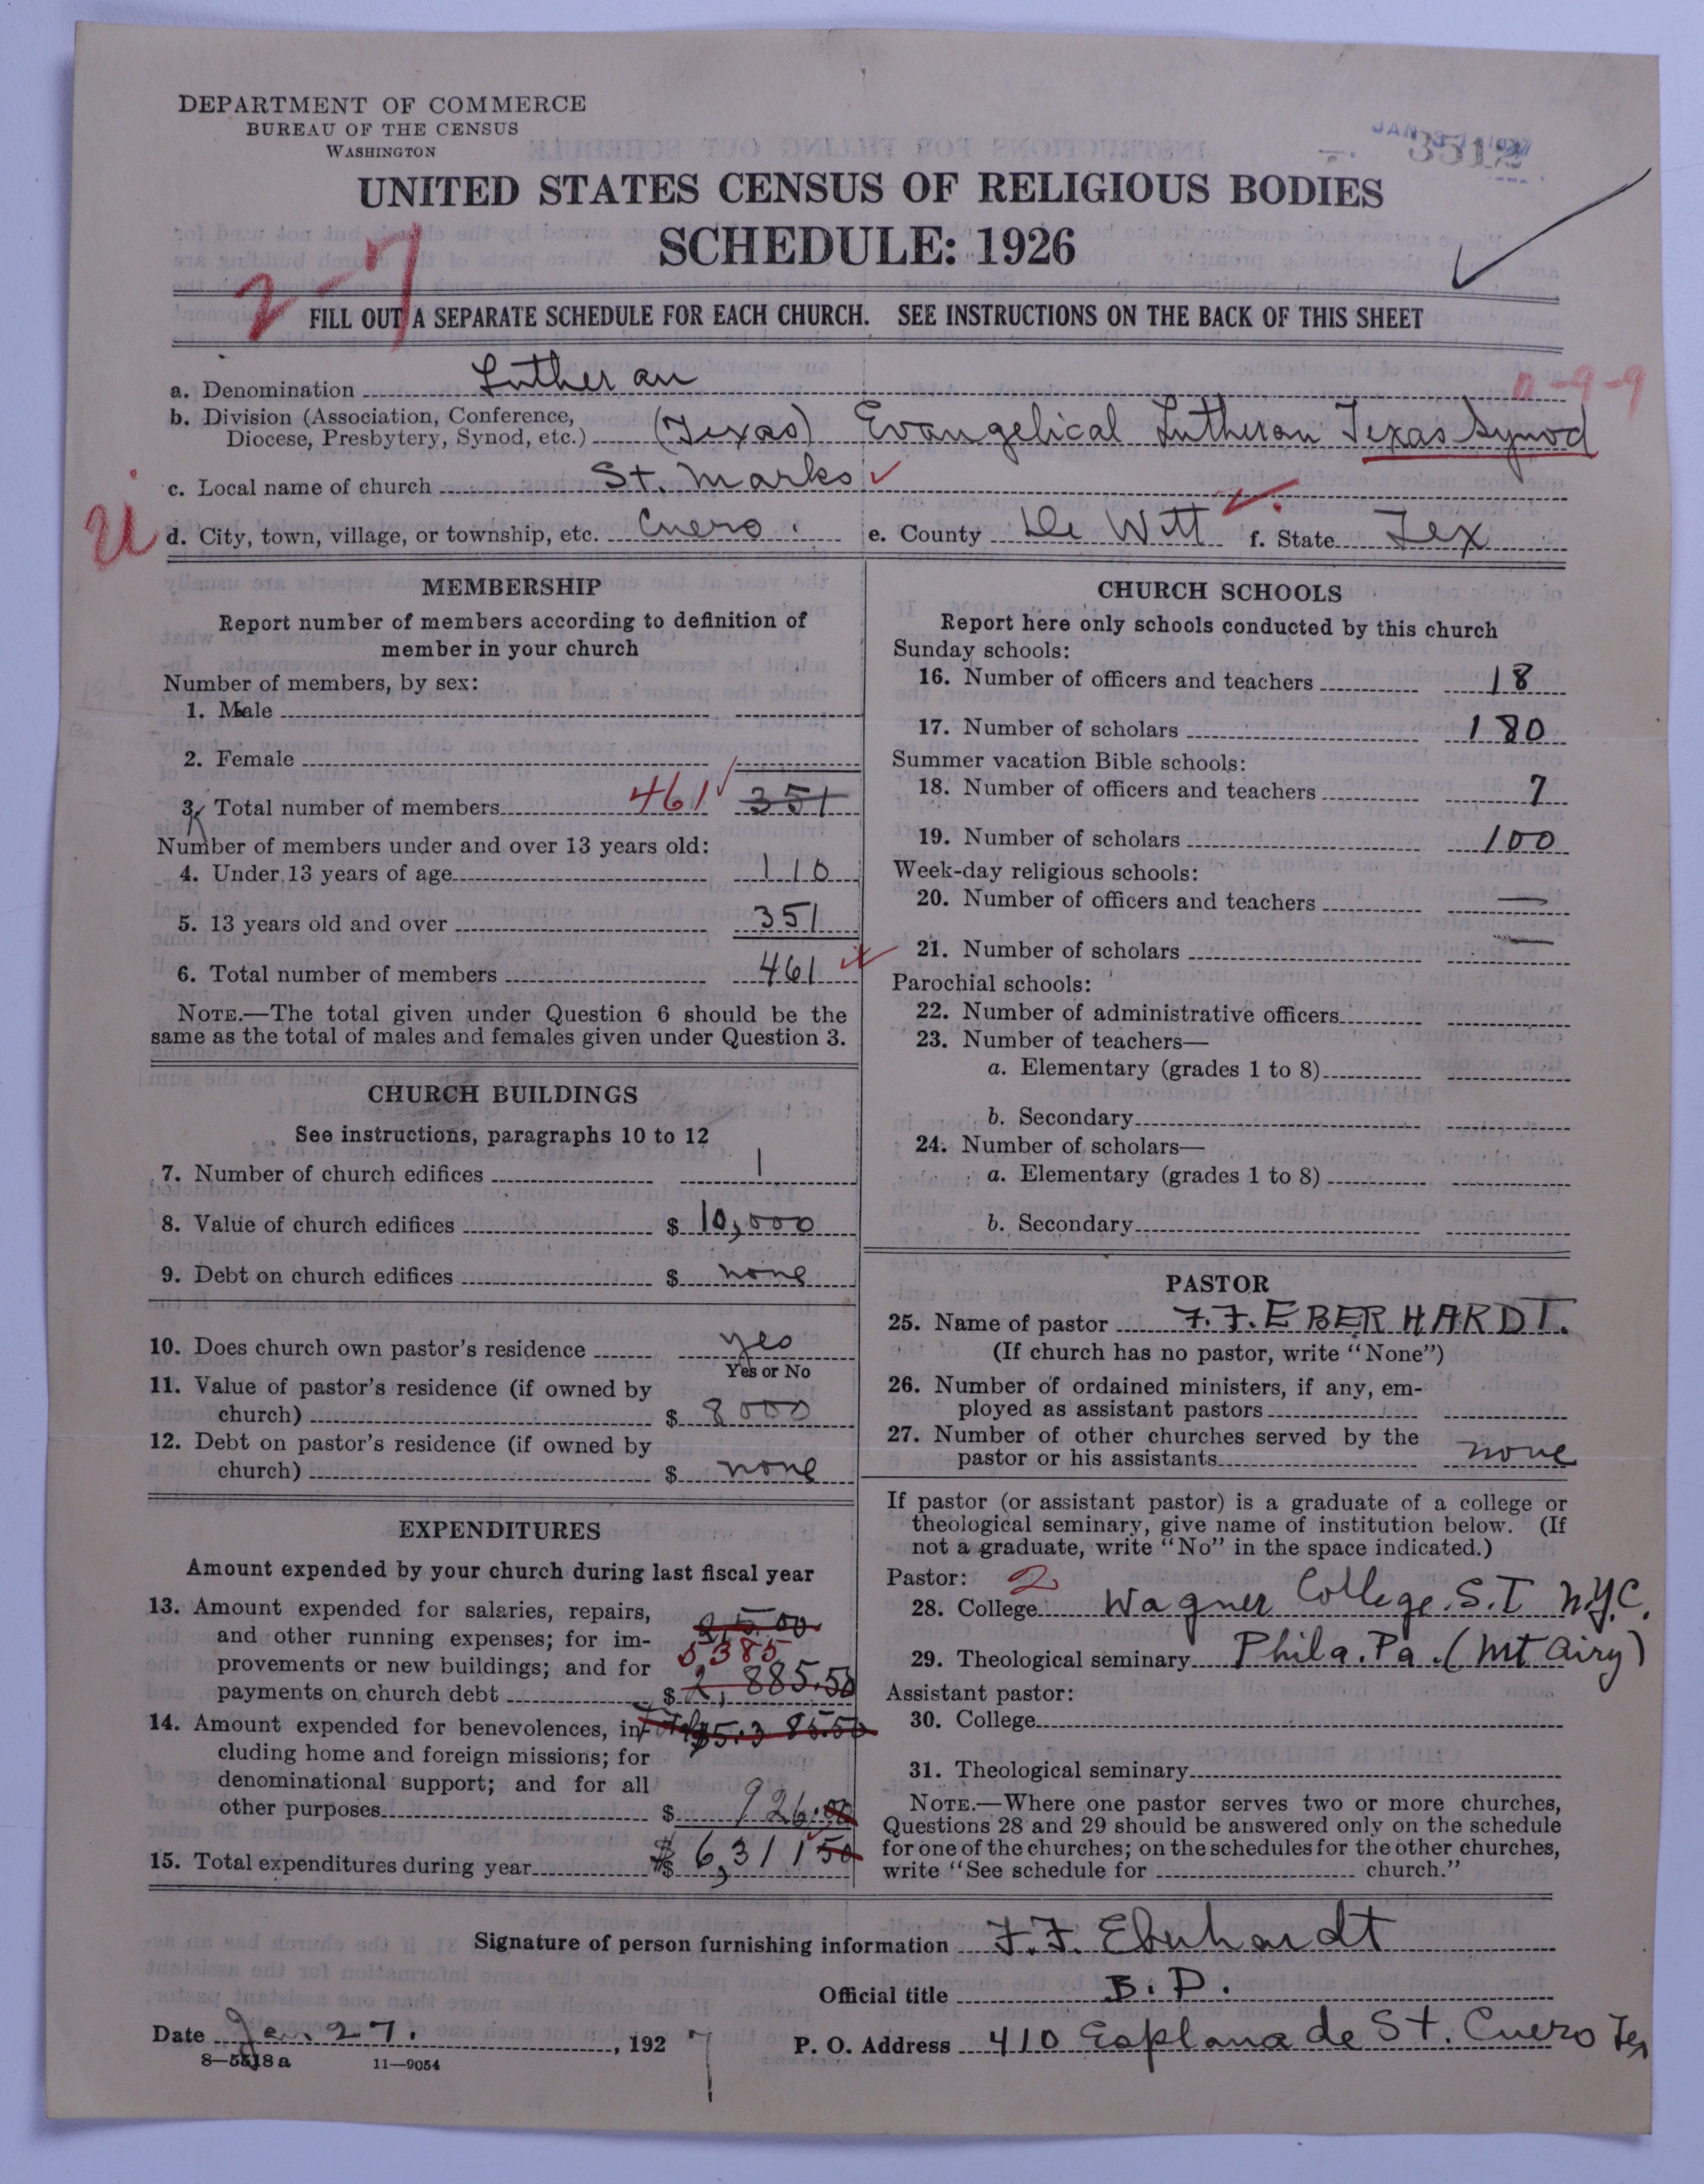 DEPARTMENT OF COMMERCE
BUREAU OF THE CENSUS
WASHINGTON
3512
UNITED STATES CENSUS OF RELIGIOUS BODIES
SCHEDULE: 1926
2-7
FILL OUT A SEPARATE SCHEDULE FOR EACH CHURCH. SEE INSTRUCTIONS ON THE BACK OF THIS SHEET
a. Denomination Lutheran
-9-9
b. Division (Association, Conference,
Diocese, Presbytery, Synod, etc.) (Texas) Evangelical Lutheran Texas Synod
c. Local name of church St. Marks
d. City, town, village, or township, etc. Cuero. e. County De Witt f. State Tex
MEMBERSHIP
Report number of members according to definition of
member in your church
Number of members, by sex:
1. Male
2. Female
3. Total number of members 461 351
Number of members under and over 13 years old:
4. Under 13 years of age 110
5. 13 years old and over 351
6. Total number of members 461
NOTE.—The total given under Question 6 should be the
same as the total of males and females given under Question 3.
CHURCH BUILDINGS
See instructions, paragraphs 10 to 12
7. Number of church edifices 1
8. Value of church edifices $ 10,000
9. Debt on church edifices $ none
10. Does church own pastor's residence yes
Yes or No
11. Value of pastor's residence (if owned by
church) $ 8000
12. Debt on pastor's residence (if owned by
church) $ none
EXPENDITURES
Amount expended by your church during last fiscal year
13. Amount expended for salaries, repairs,
and other running expenses; for im-
provements or new buildings; and for 5385
payments on church debt $ 2,885.50
14. Amount expended for benevolences, in- $5.385.50
cluding home and foreign missions; for
denominational support; and for all
other purposes $ 926.00
15. Total expenditures during year $ 6,311 50
CHURCH SCHOOLS
Report here only schools conducted by this church
Sunday schools:
16. Number of officers and teachers 18
17. Number of scholars 180
Summer vacation Bible schools:
18. Number of officers and teachers 7
19. Number of scholars 100
Week-day religious schools:
20. Number of officers and teachers —
21. Number of scholars —
Parochial schools:
22. Number of administrative officers
23. Number of teachers—
a. Elementary (grades 1 to 8)
b. Secondary
24. Number of scholars—
a. Elementary (grades 1 to 8)
b. Secondary
PASTOR
25. Name of pastor F. F. EBERHARDT.
(If church has no pastor, write "None")
26. Number of ordained ministers, if any, em-
ployed as assistant pastors
27. Number of other churches served by the
pastor or his assistants none
If pastor (or assistant pastor) is a graduate of a college or
theological seminary, give name of institution below. (If
not a graduate, write "No" in the space indicated.)
Pastor: 2
28. College Wagner College. S.I N.Y.C.
29. Theological seminary Phila. Pa. (Mt Airy)
Assistant pastor:
30. College
31. Theological seminary
NOTE.—Where one pastor serves two or more churches,
Questions 28 and 29 should be answered only on the schedule
for one of the churches; on the schedules for the other churches,
write "See schedule for church."
Signature of person furnishing information F. F. Eberhardt
Official title B. D.
Date Jan. 27. , 1927 P. O. Address 410 Esplanade St. Cuero Tex
8—5518a 11—9054